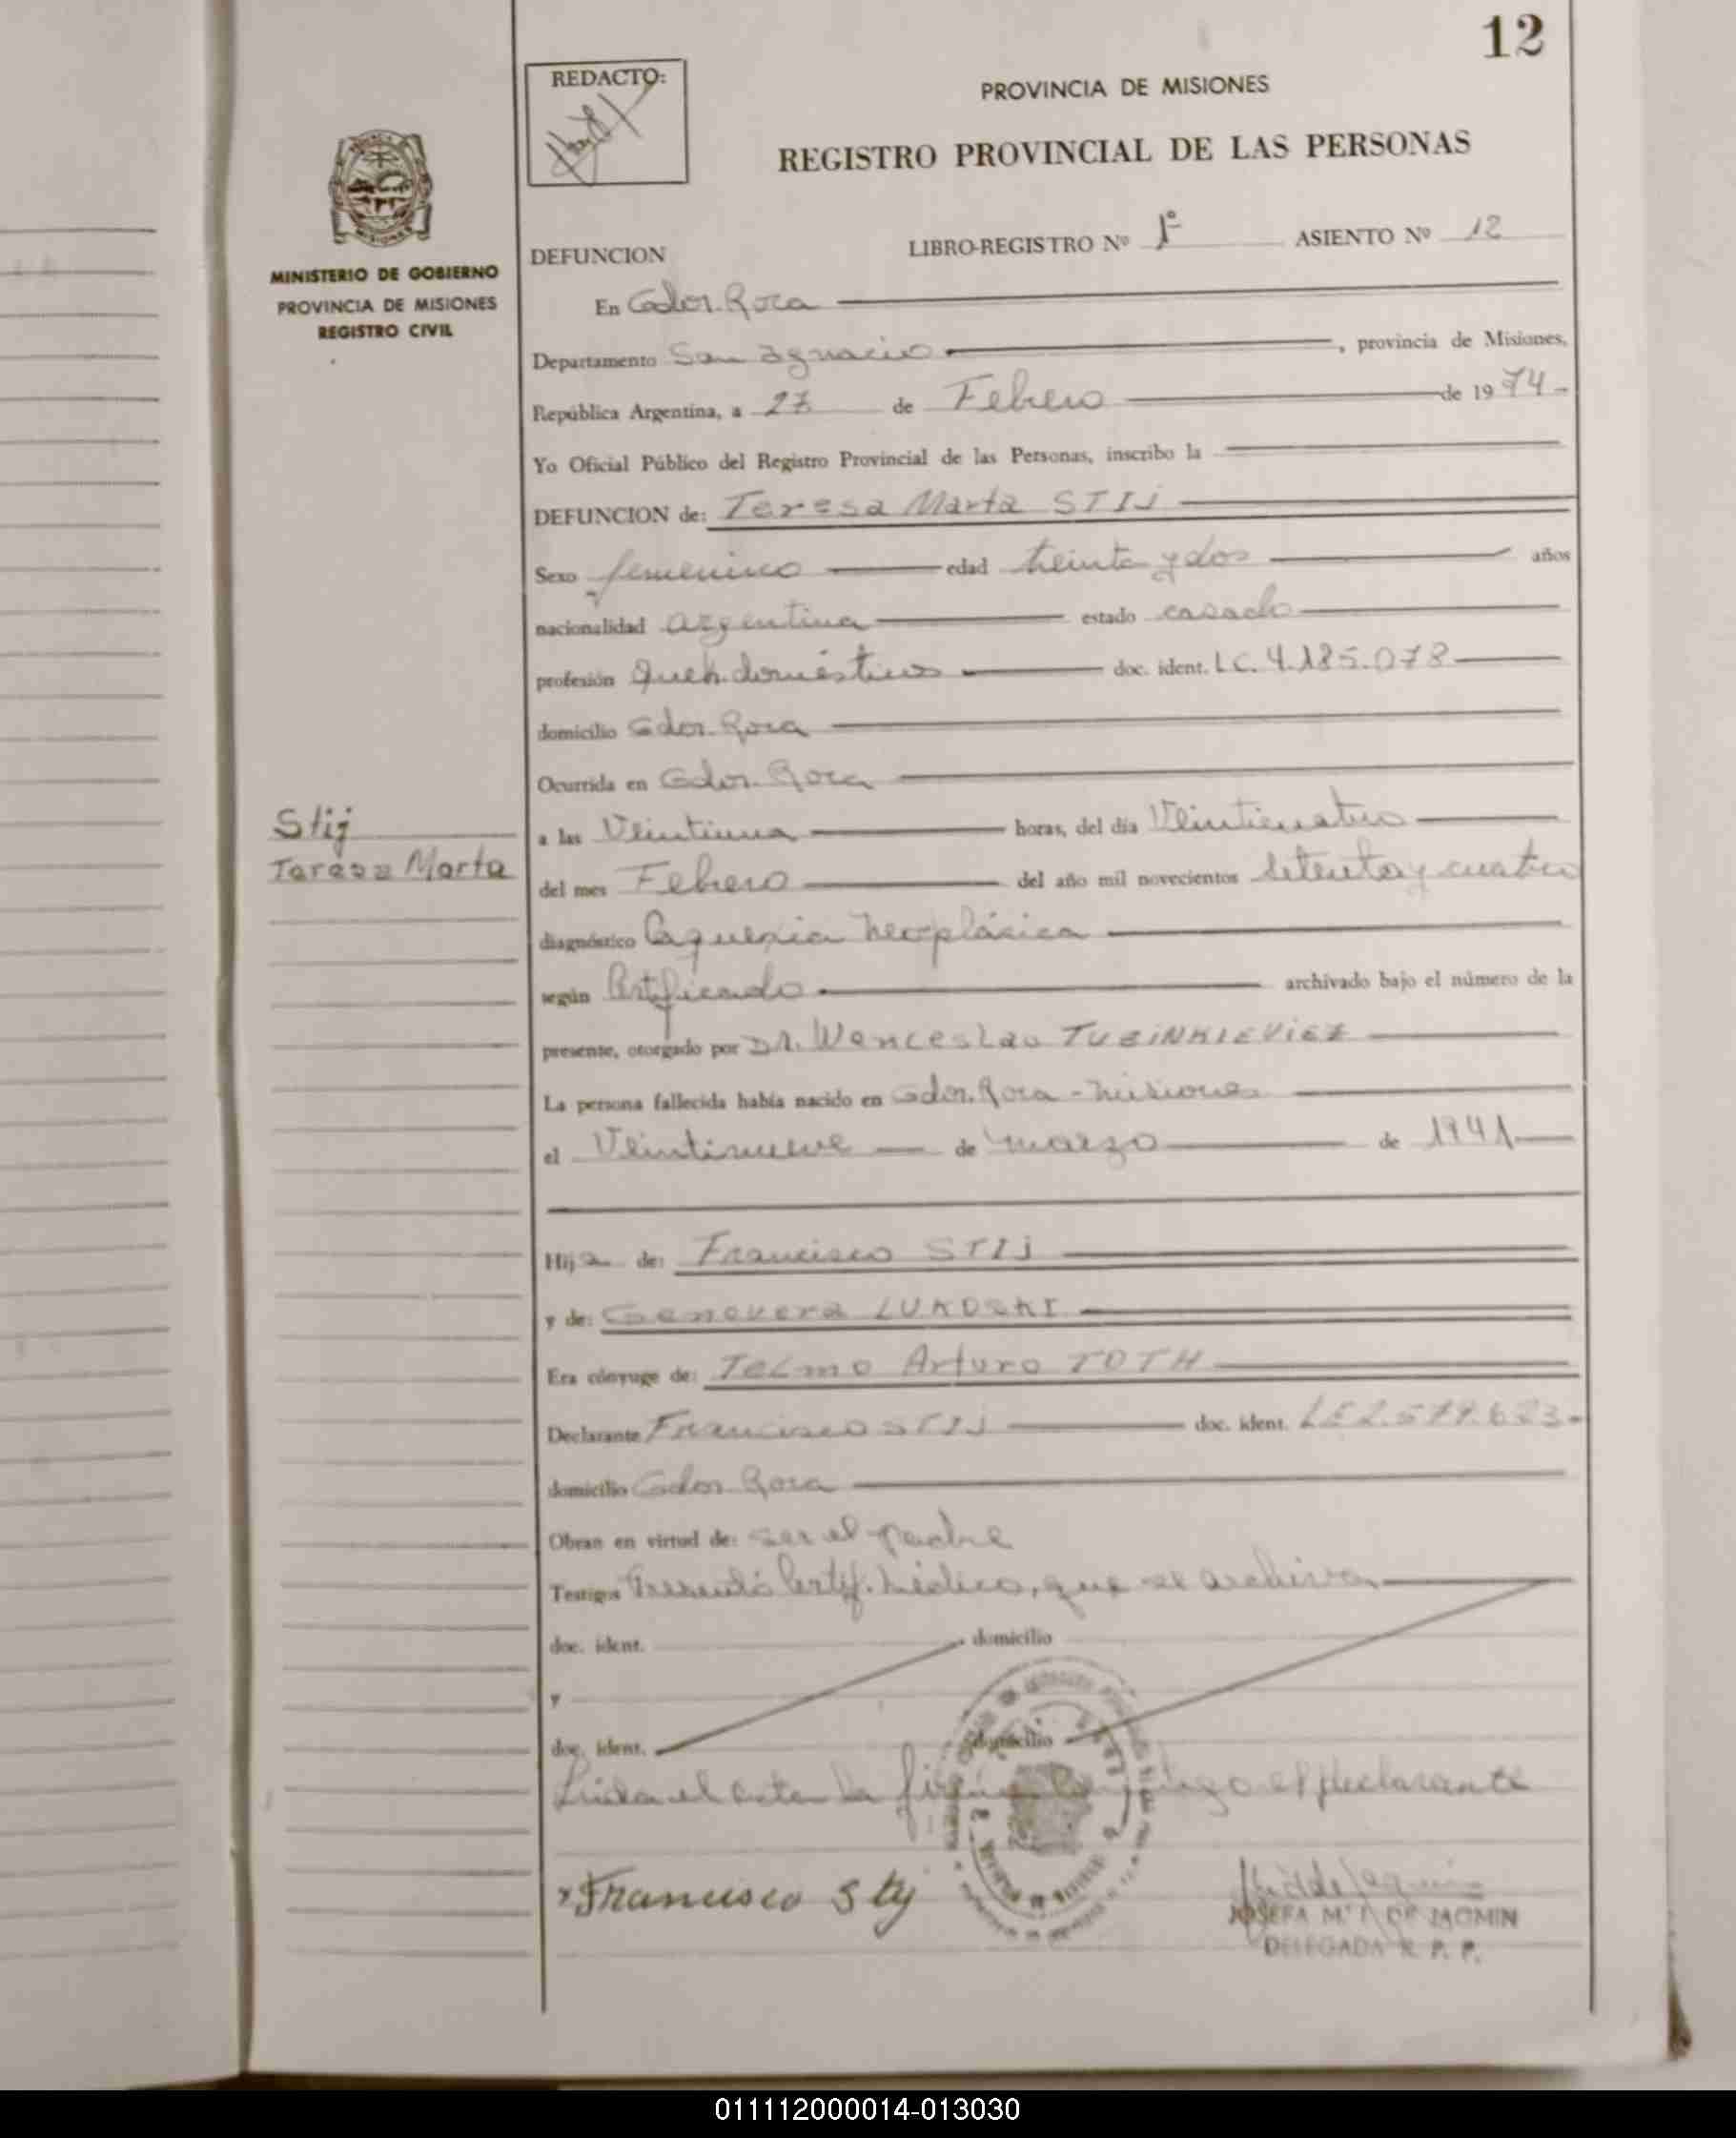 12
REDACTO:
PROVINCIA DE MISIONES
REGISTRO PROVINCIAL DE LAS PERSONAS
MINISTERIO DE GOBIERNO
PROVINCIA DE MISIONES
REGISTRO CIVIL
DEFUNCION LIBRO-REGISTRO Nº 1º ASIENTO Nº 12
En Gdor. Roca
Departamento San Ignacio, provincia de Misiones,
República Argentina, a 27 de Febrero de 1974-
Yo Oficial Público del Registro Provincial de las Personas, inscribo la
DEFUNCION de: Teresa Marta STIJ
Sexo femenino edad treinta y dos años
nacionalidad argentina estado casada
profesión Queh. domésticos doc. ident. LC. 4.185.078
domicilio Gdor. Roca
Ocurrida en Gdor. Roca
Stij
Teresa Marta
a las Veintiuna horas, del día Veinticuatro
del mes Febrero del año mil novecientos Setenta y cuatro
diagnóstico Caquexia neoplásica
según Certificado archivado bajo el número de la
presente, otorgado por Dr. Wenceslao
La persona fallecida había nacido en Gdor. Roca - Misiones
el Veintinueve de marzo de 1941
Hija de: Francisco STIJ
y de: Genovera LUKOSKI
Era cónyuge de: Telmo Arturo TOTH
Declarante Francisco STIJ doc. ident. LE
domicilio Gdor. Roca
Obran en virtud de: ser el padre
Testigos Presentó Certif. Médico, que se archiva
doc. ident. domicilio
y
doc. ident. domicilio
Leída el acta la firma conmigo el declarante
Francisco Stij
JOSEFA M. DE JACMIN
DELEGADA R. P. P.
011112000014-013030